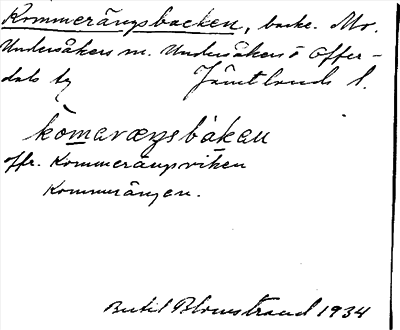 Kommerängsbacken, backe. Mo.
Undersåkers sn. Undersåkers o Offer-
dals tg Jämtlands l.
kömaræŋsbàkan
ffr. Kommerängsviken
Kommerängen.
Bertil Blomstrand 1934